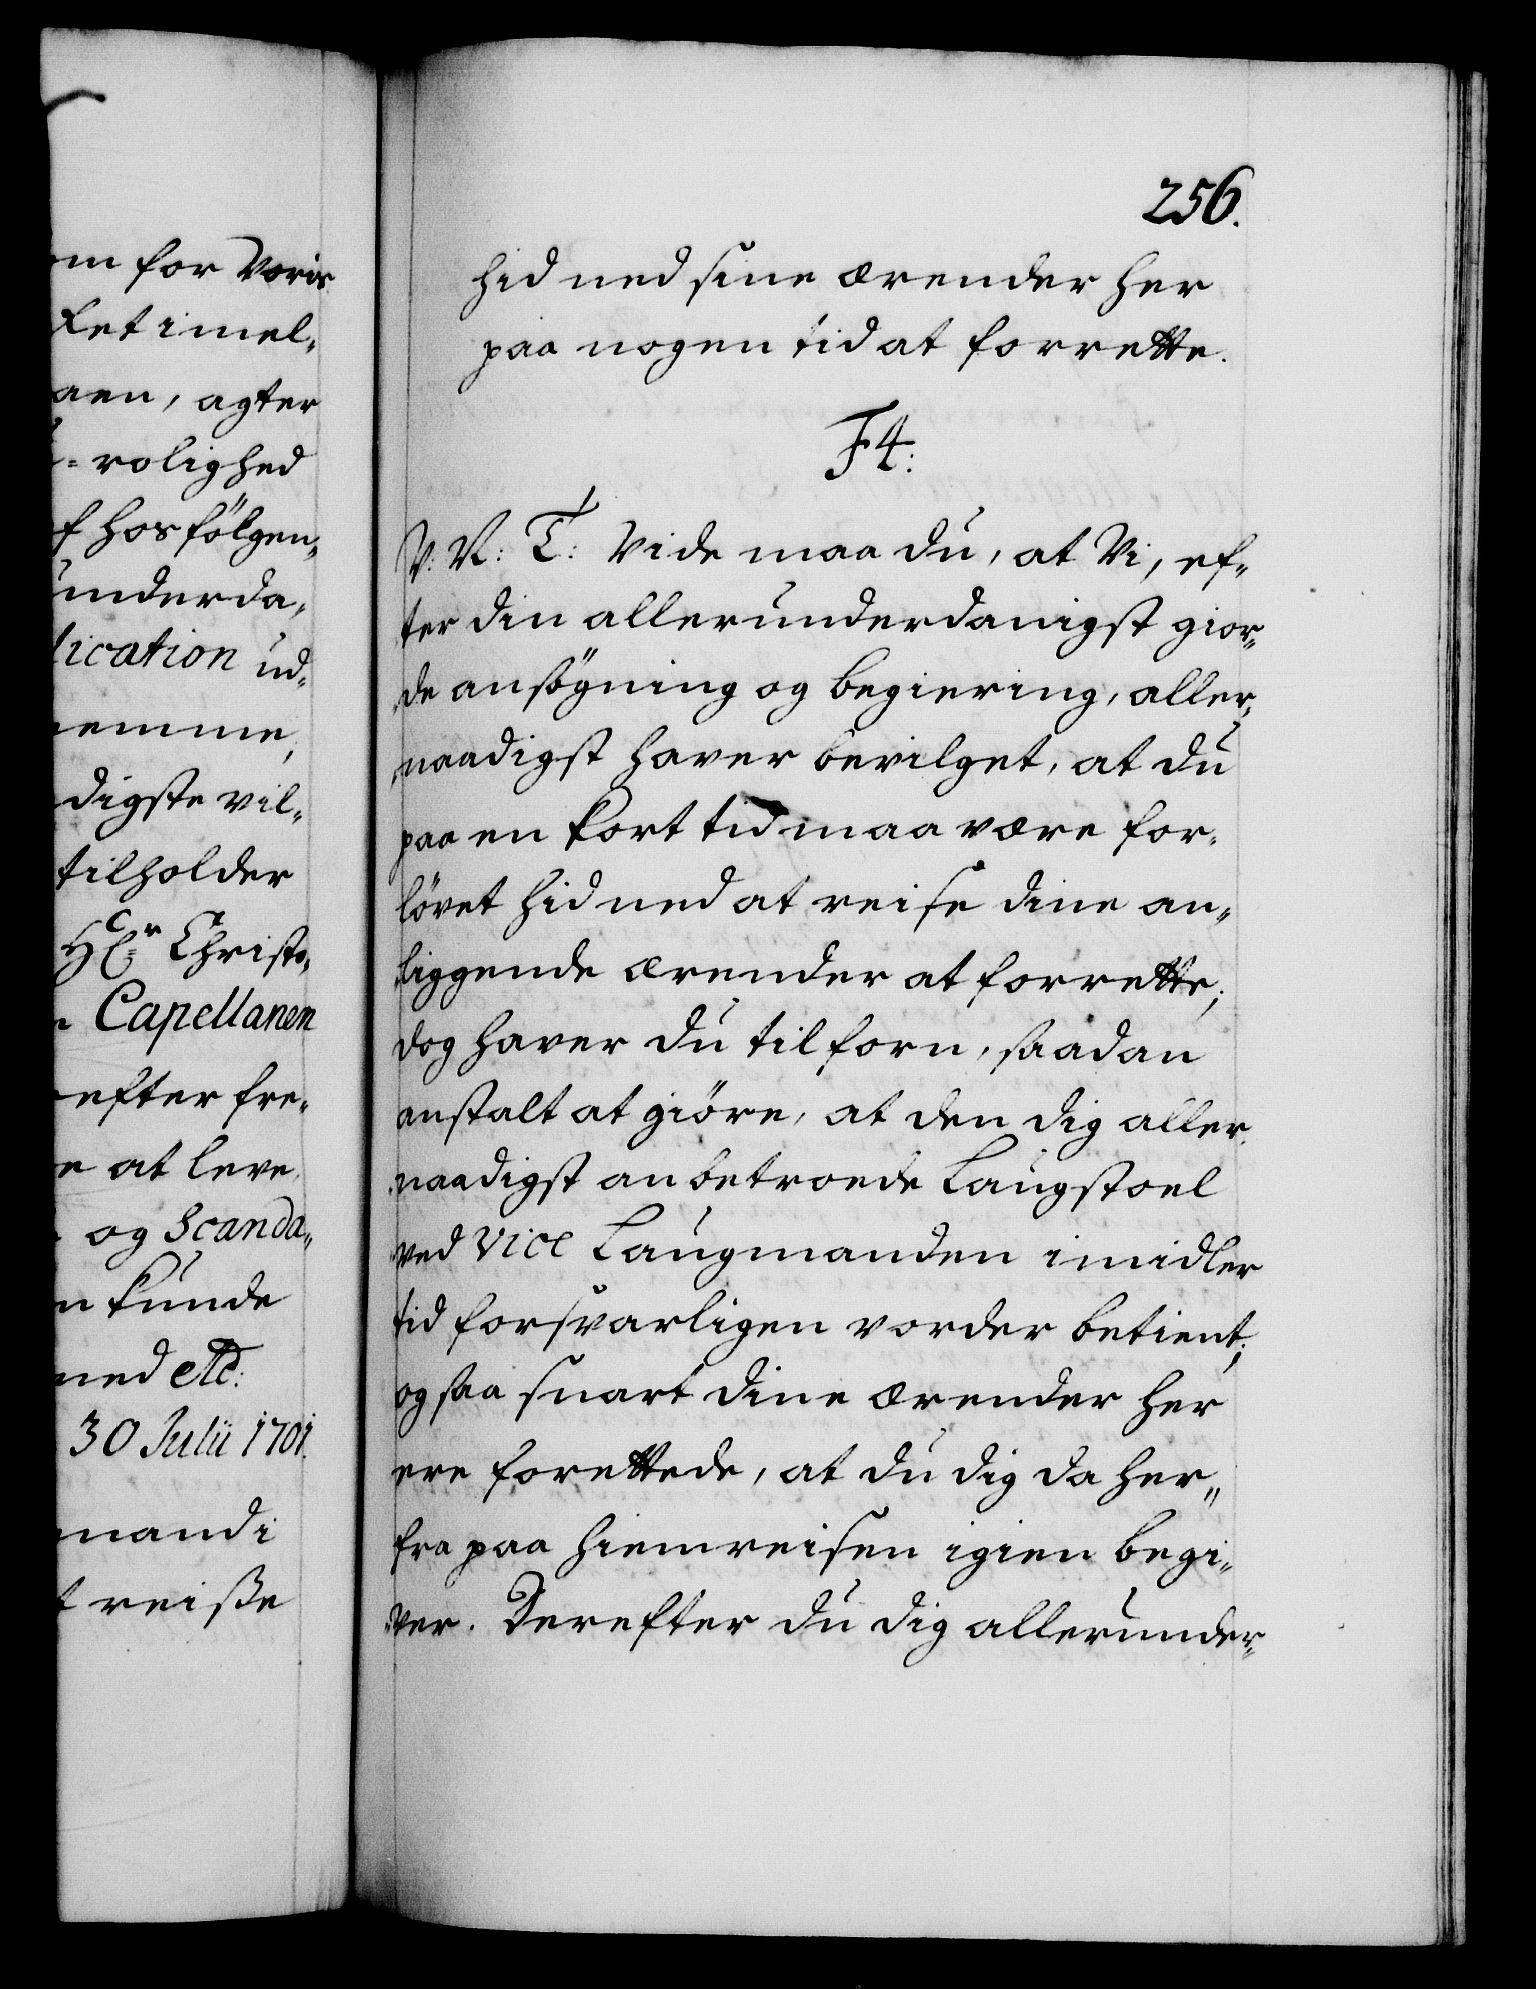 om for Voris
ket imel-
aen, agter
rolighed
f hosfölgen-
underda-
lication ud-
emme,
digste vil-
tilholder
Hr Christo-
Capellanen
efter fre-
e at leve
og Scanda-
n kunde
ned etc:
30 Julii 1701.
mand i
t reiße
256.
hid ned sine ærender her
paa nogen tid at forrette.
F4:
V: V: T: Vide maa du, at Vi, ef-
ter din allerunderdanigst gior-
de ansögning og begiering, aller-
naadigst haver bevilget, at du
paa en kort tid maa være for-
lövet hid ned at reise dine an-
liggende ærender at forrette;
dog haver du tilforn, saadan
anstalt at giöre, at den dig aller-
naadigst anbetroede Laugstoel
ved Vice Laugmanden imidler
tid forsvarligen vorder betient;
og saa snart dine ærender her
ere forettede, at du dig da her-
fra paa hiemreisen igien begi-
ver. Derefter du dig allerunder-